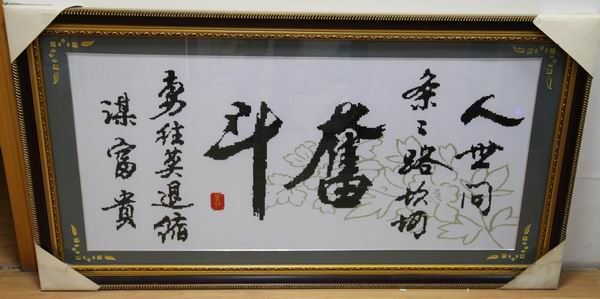 人世间
条〻路坎坷
奮斗
勇往莫退缩
谋富貴